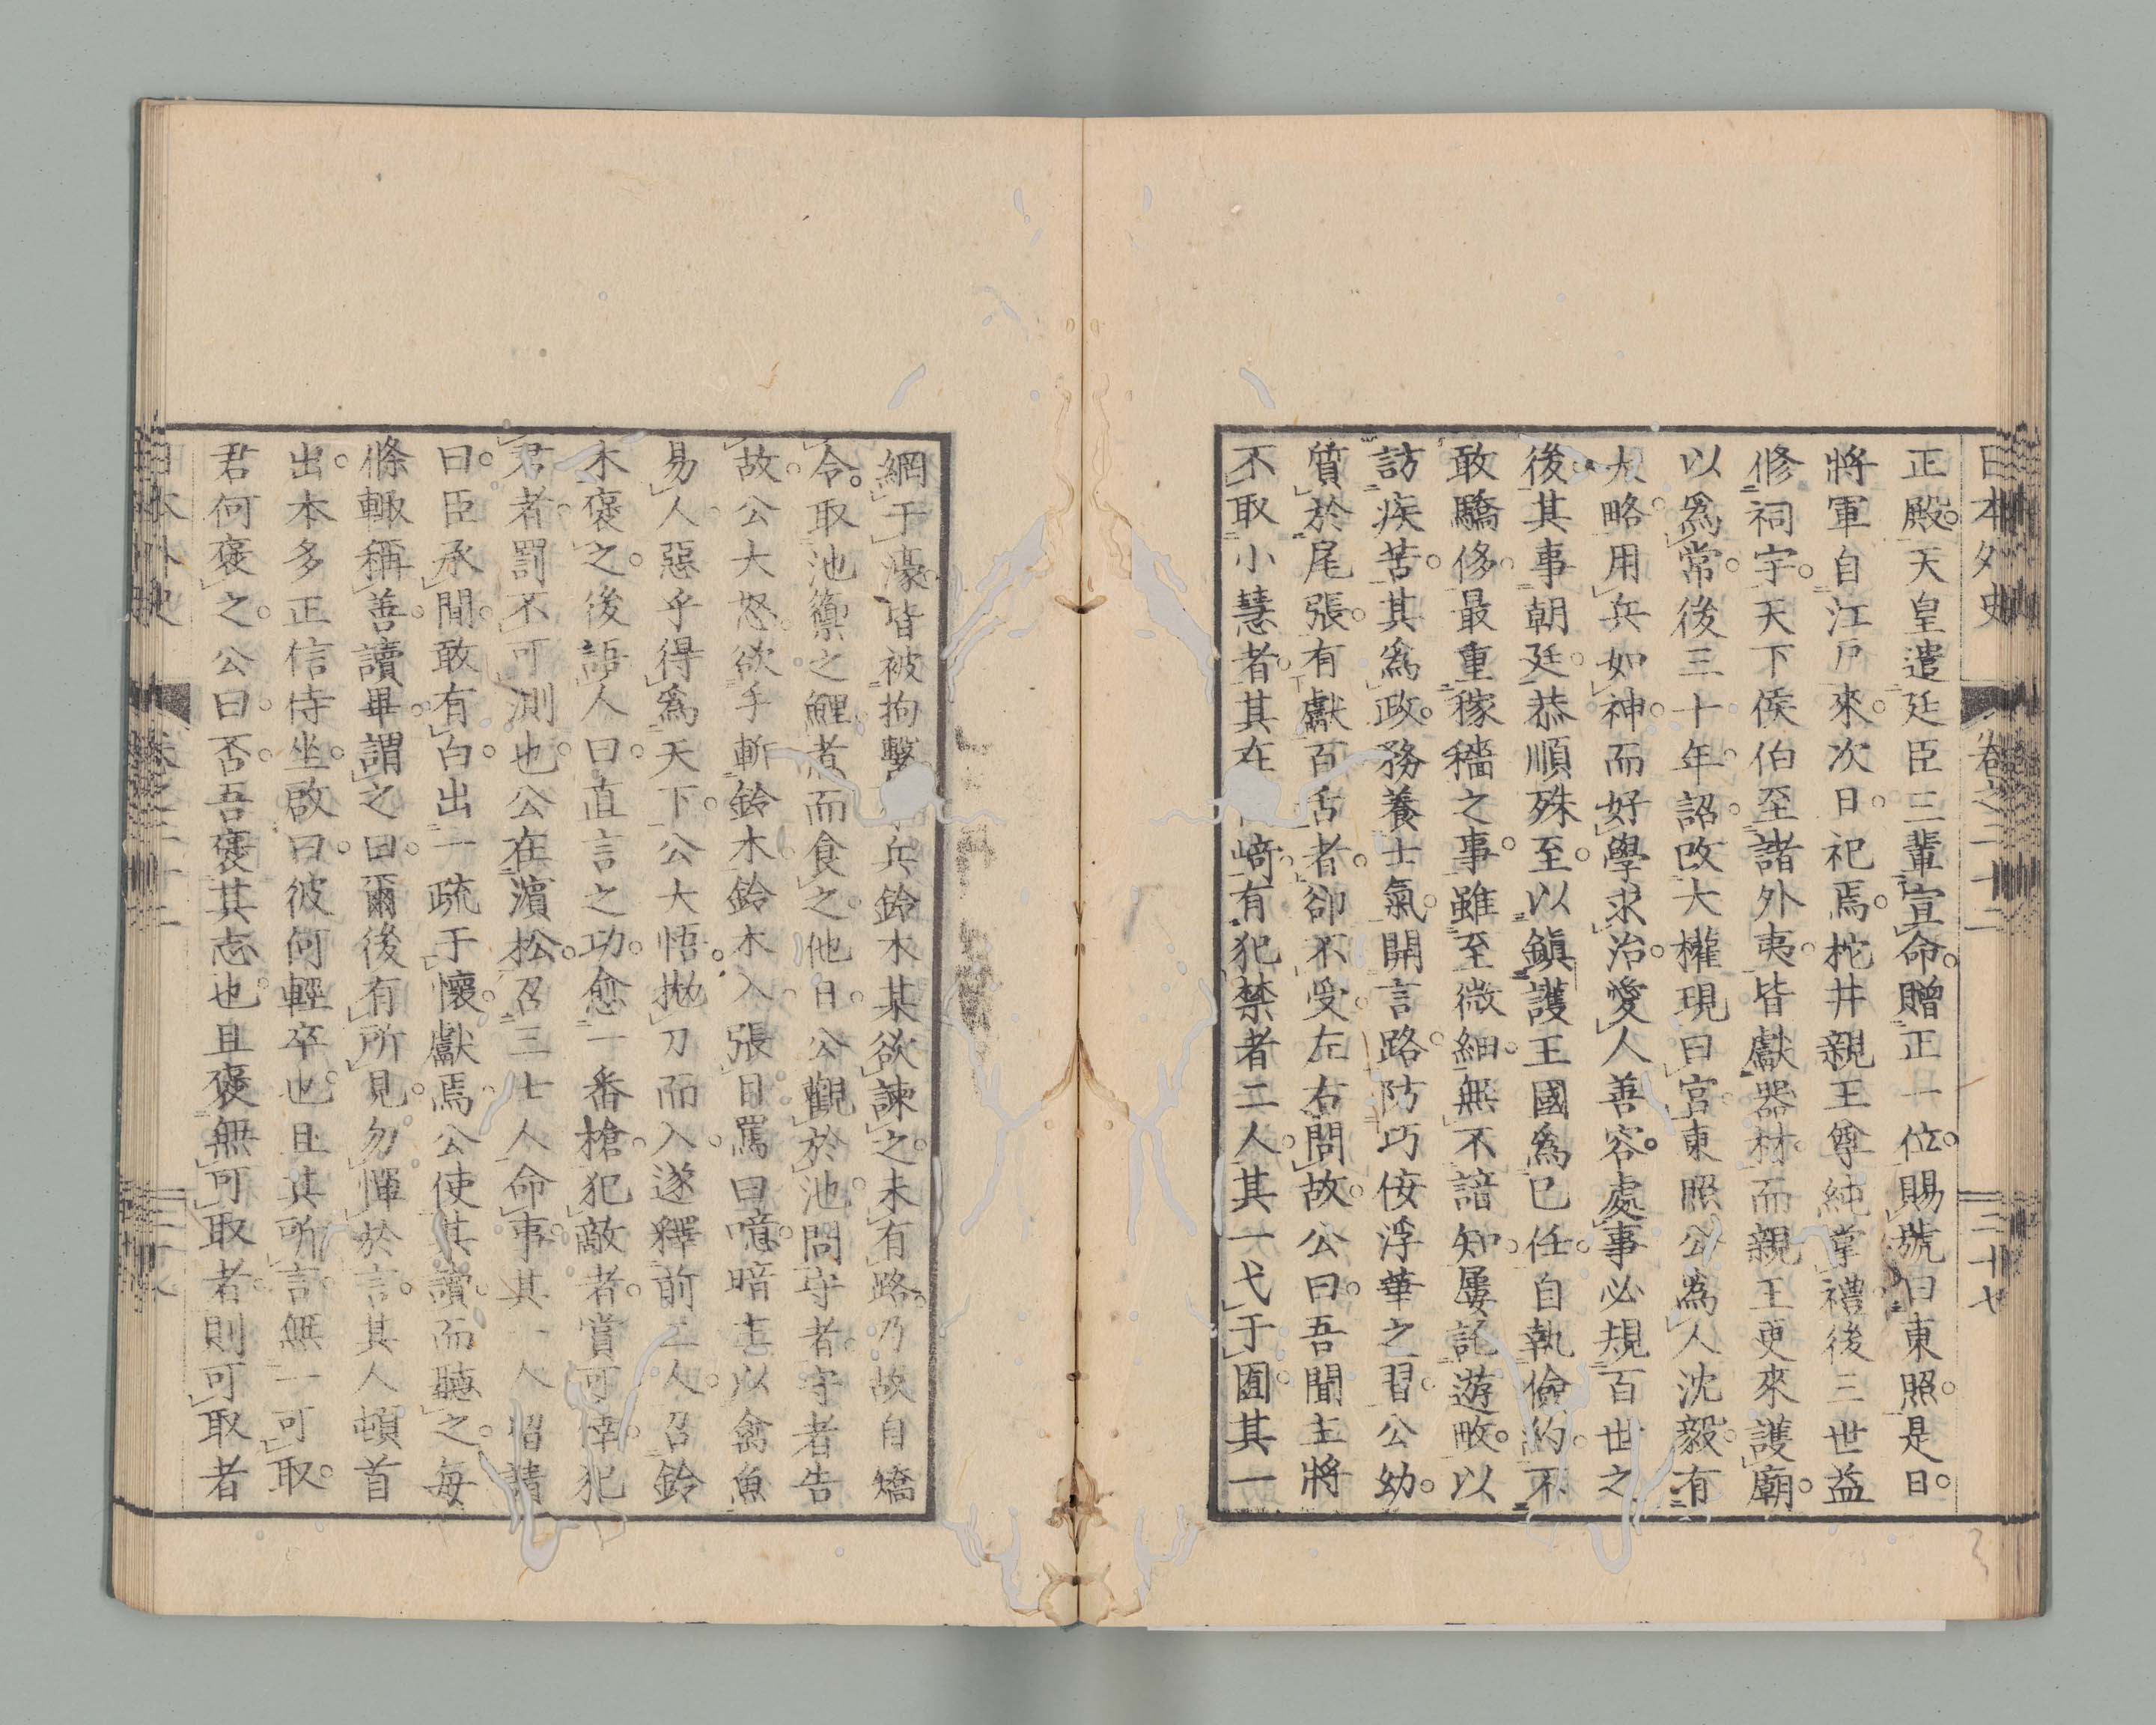 日本外史 卷之二十二 三十七
正殿天皇遣廷臣三輩宣命贈正一位賜號曰東照是日
將軍自江戶來次日祀焉梶井親王尊純掌禮後三世益
修祠宇天下侯伯至諸外夷皆獻器材而親王更來護廟
以爲常後三十年詔改大權現曰宮東照公為人沈毅有
大略用兵如神而好學求治愛人善容處事必規百世之
後其事朝廷恭順殊至以鎭護王國爲己任自執儉約不
敢驕侈最重稼穡之事雖至微細無不諳知屢託遊畋以
訪疾苦其爲政務養士氣開言路防巧佞浮華之習公幼
質於尾張有獻百舌者卻不受左右問故公曰吾聞主將
不取小慧者其在 崎有犯禁者二人其一弋于囿其一
網于濠皆被拘繫 兵鈴木某欲諫之未有路乃故自矯
令取池籞之鯉煮而食之他日公觀於池問守者守者告
故公大怒欲手斬鈴木鈴木入張目罵曰噫暗主以禽魚
易人惡乎得爲天下公大悟抛刀而入遂釋前二人召鈴
木褒之後語人曰直言之功愈一番槍犯敵者賞可幸犯
君者罰不可測也公在濱松召三士人命事其一人留請
曰臣承間敢有白出一疏于懷獻焉公使其讀而聽之每
條輙稱善讀畢謂之曰爾後有所見勿憚於言其人頓首
出本多正信侍坐啟曰彼何輕卒也且其所言無一可取
君何褒之公曰否吾褒其志也且褒無可取者則可取者
日本外史 卷之二十二